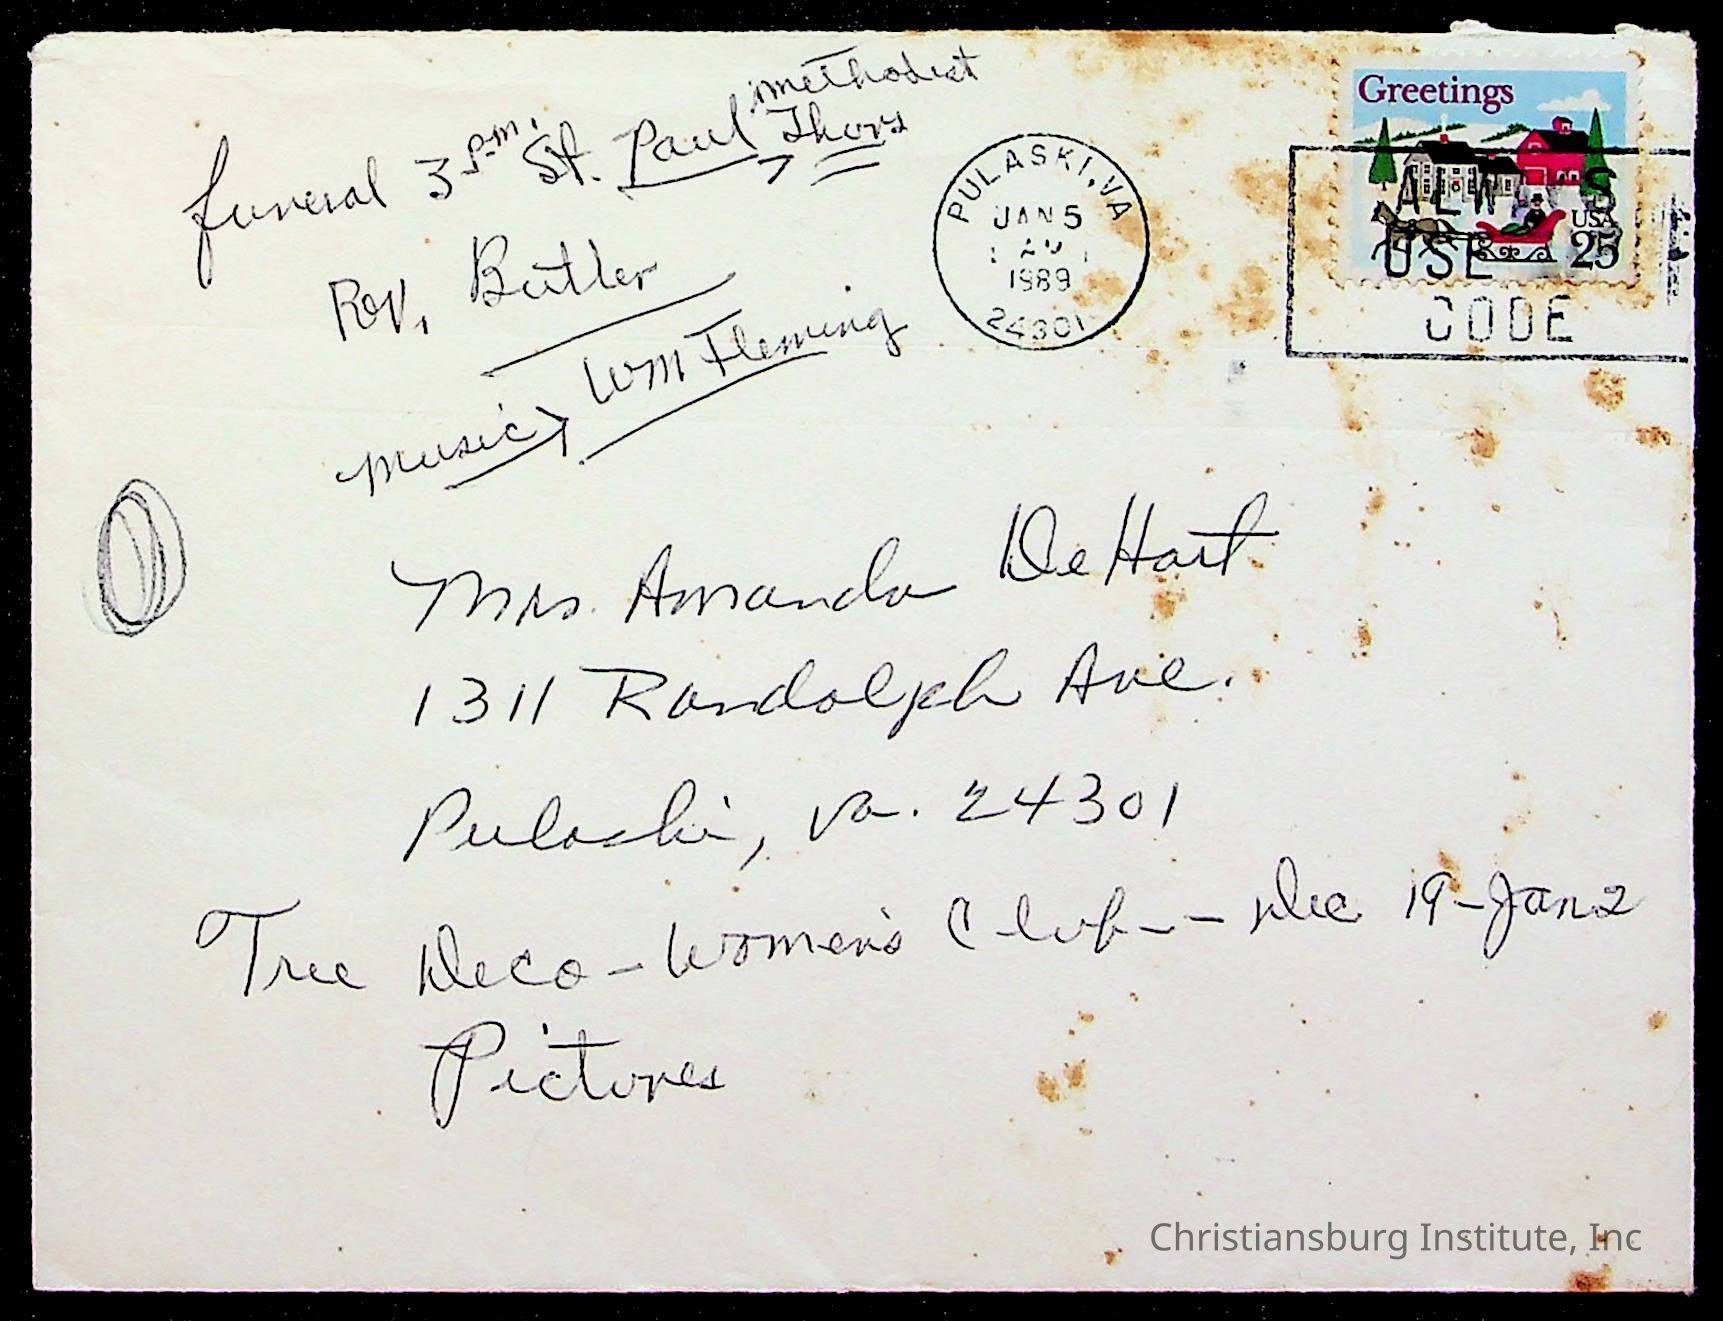 methodist
funeral 3 p.m. St. Paul Thurs
Rev. Butler
music Wm Fleming
PULASKI, VA
JAN 5
1989
24301
Greetings
USA
25
USE
CODE
Mrs. Amanda DeHart
1311 Randolph Ave.
Pulaski, Va. 24301
Tree Deco - Women's Club - Dec 19 - Jan 2
Pictures
Christiansburg Institute, Inc